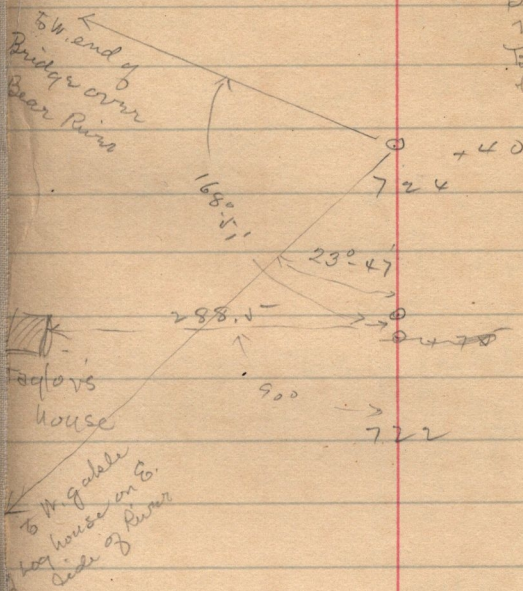 To W. end of
Bridge over
Bear River
+40
724
168° 5'
23°-47'
288.5
Taylor's
house
90°
722
To W. gable
Log house on E.
side of River